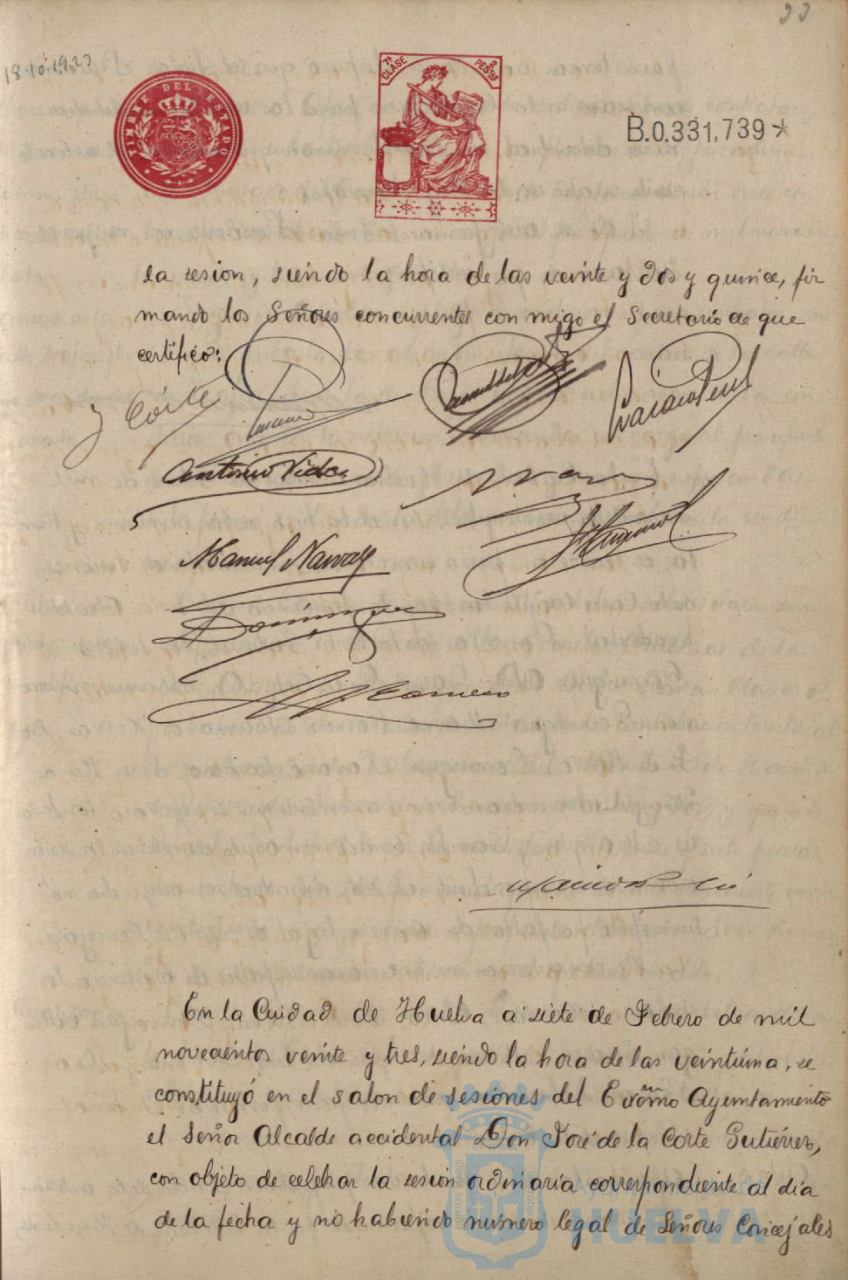 33
18-10-1923
TIMBRE DEL ESTADO
7ª CLASE
PESETAS
B.0.331,739*
la sesion, siendo la hora de las veinte y dos y quince, fir
mando los Señores concurrentes con migo el Secretario de que
certifico:
J Corte
Antonio Vidos
Manuel Navar
Dominguez
Romero
En la Cuidad de Huelva a siete de Febrero de mil
novecientos veinte y tres, siendo la hora de las veintiuna, se
constituyó en el salon de sesiones del Excmo Ayuntamiento
el Señor Alcalde accidental Don José de la Corte Gutiérrez,
con objeto de celebrar la sesión ordinaria correspondiente al día
de la fecha y no habiendo número legal de Señores Concejales
HUELVA